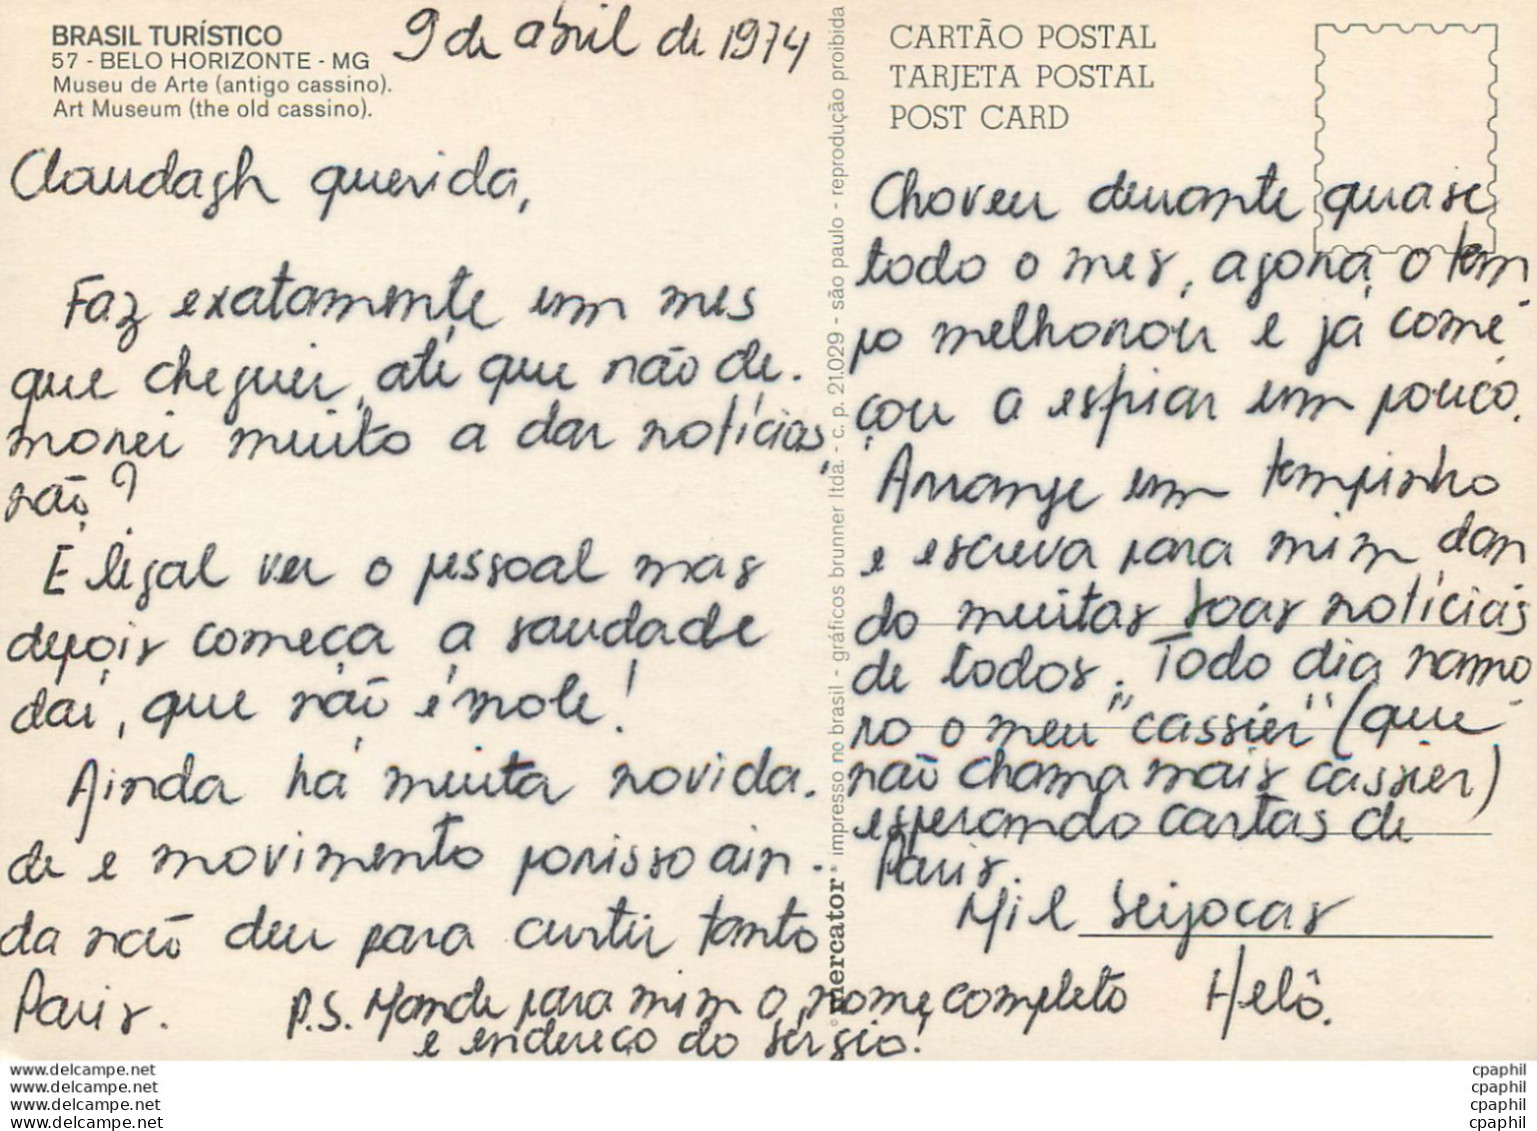 BRASIL TURÍSTICO
57 - BELO HORIZONTE - MG
Museu de Arte (antigo cassino).
Art Museum (the old cassino).
9 de abril de 1974
Claudagh querida,
Faz exatamente um mes
que cheguei, até que não de-
morei muito a dar notícias,
não?
É legal ver o pessoal mas
depois começa a saudade
daí, que não é mole!
Ainda há muita novida-
de e movimento porisso ain-
da não deu para curtir tanto
Paris.
P.S. Mande para mim o nome completo
e endereço do Sérgio!
mercator impresso no brasil - gráficos brunner ltda. - c. p. 21.029 - são paulo - reprodução proibida
CARTÃO POSTAL
TARJETA POSTAL
POST CARD
Choveu durante quase
todo o mes, agora o tem
po melhorou e já come
çou a esfriar um pouco.
Arrange um tempinho
e escreva para mim dan
do muitas boas notícias
de todos. Todo dia namo
ro o meu "cassier" (que
não chama mais cassier)
esperando cartas de
Paris.
Mil beijocas
Helô.
www.delcampe.net
www.delcampe.net
www.delcampe.net
www.delcampe.net
cpaphil
cpaphil
cpaphil
cpaphil